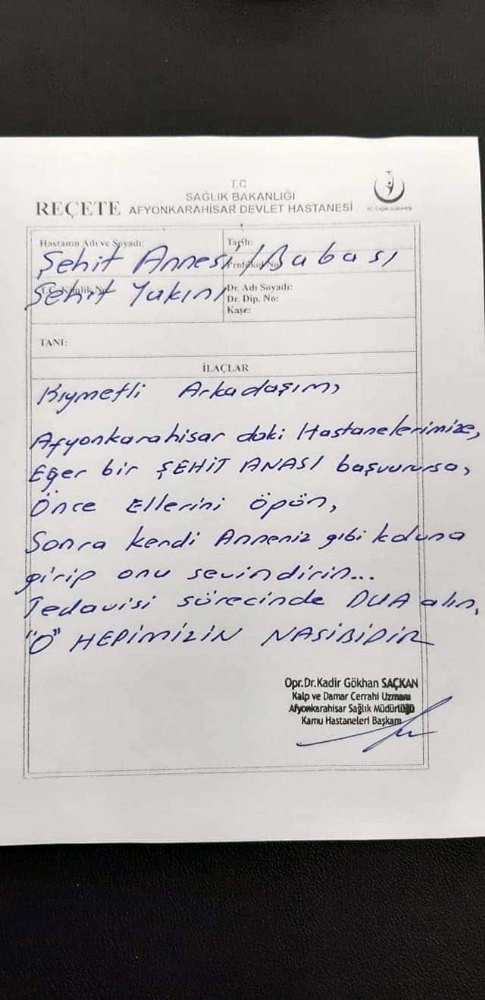 T.C
SAĞLIK BAKANLIĞI
REÇETE AFYONKARAHİSAR DEVLET HASTANESİ
Hastanın Adı ve Soyadı:
Tarih:
Protokol No
Şehit Annesi/Babası
T.C. Kimlik No
Şehit Yakını
Dr. Adı Soyadı:
Dr. Dip. No:
Kaşe:
TANI:
İLAÇLAR
Kıymetli Arkadaşım,
Afyonkarahisar daki Hastanelerimize,
Eğer bir ŞEHİT ANASI başvurursa,
Önce Ellerini öpün,
Sonra kendi Anneniz gibi koluna
girip onu sevindirin...
Tedavisi sürecinde DUA alın,
"O" HEPİMİZİN NASİBİDİR
Opr.Dr.Kadir Gökhan SAÇKAN
Kalp ve Damar Cerrahi Uzmanı
Afyonkarahisar Sağlık Müdürlüğü
Kamu Hastaneleri Başkanı